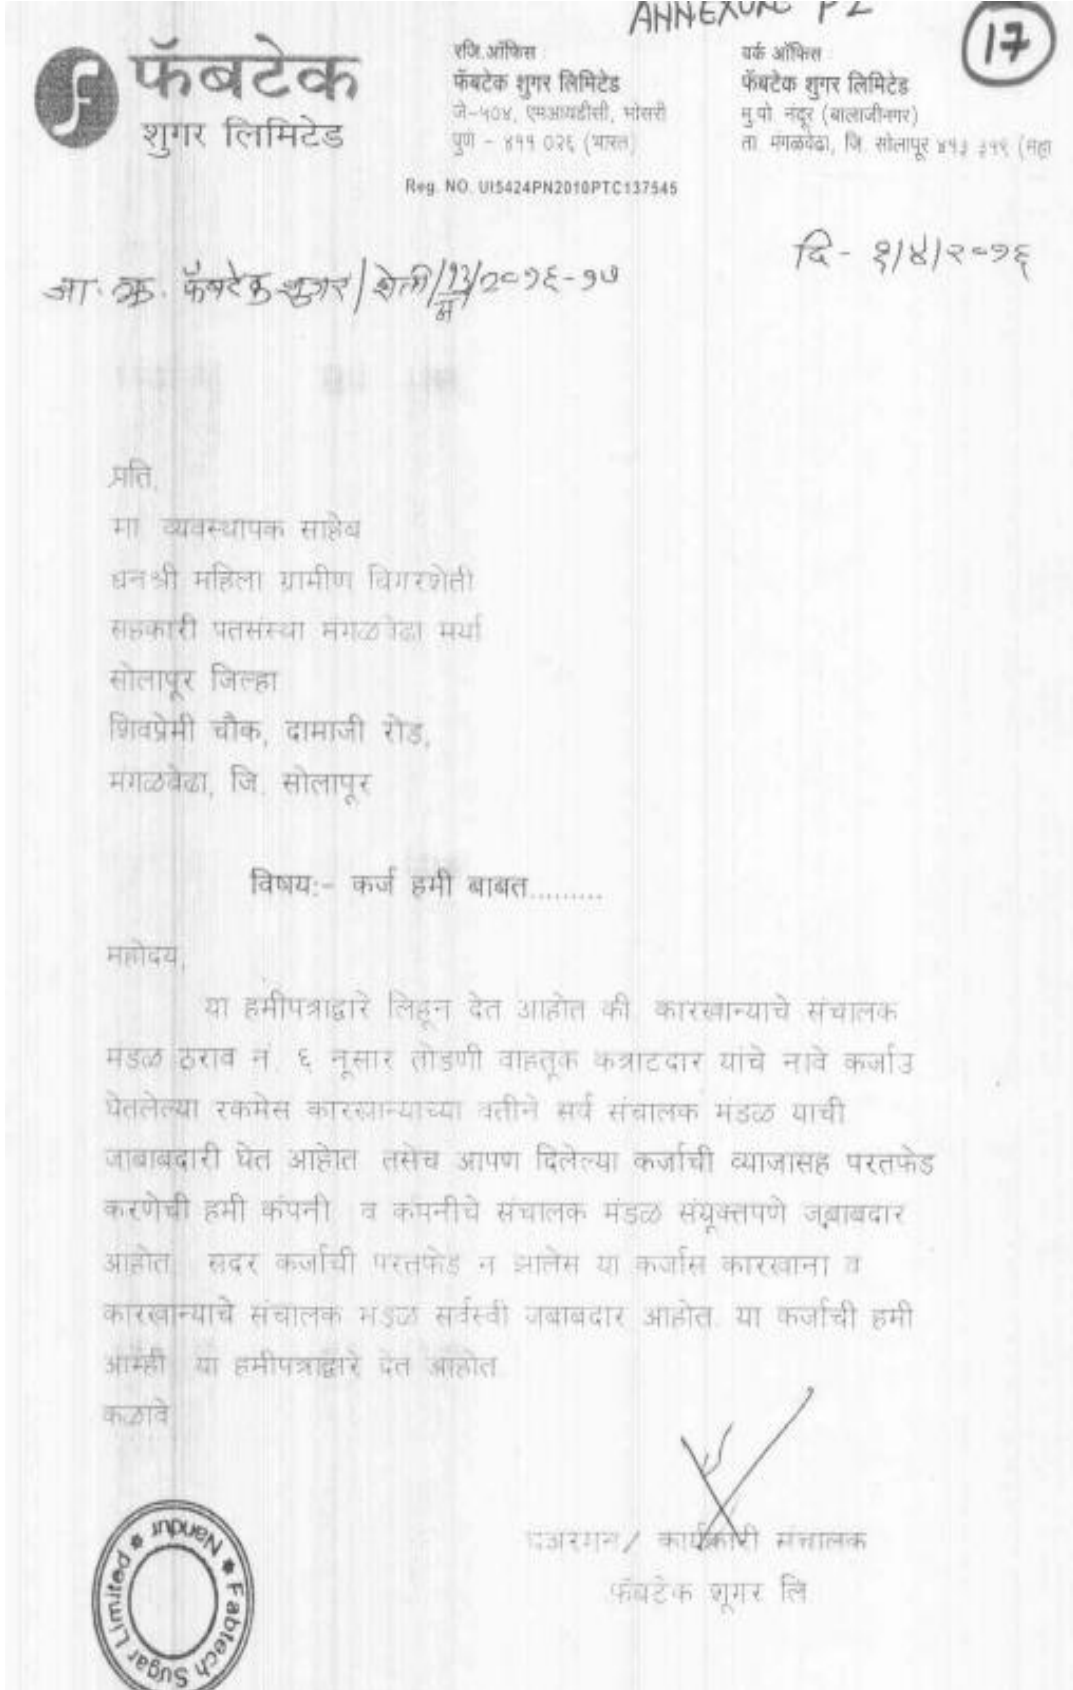 ANNEXURE P2
17
फॅबटेक
शुगर लिमिटेड
रजि.ऑफिस :
फॅबटेक शुगर लिमिटेड
जे-५०४, एमआयडीसी, भोसरी
पुणे - ४११ ०२६ (भारत)
वर्क ऑफिस :
फॅबटेक शुगर लिमिटेड
मु.पो. नंदूर (बालाजीनगर)
ता. मंगळवेढा, जि. सोलापूर ४१३ ३१९ (महा
Reg. NO. U15424PN2010PTC137545
दि - १/४/२०१६
जा. क्र. फॅबटेक शुगर/शेती/ /२०१६-१७
प्रति,
मा. व्यवस्थापक साहेब
धनश्री महिला ग्रामीण बिगरशेती
सहकारी पतसंस्था मंगळवेढा मर्या
सोलापूर जिल्हा
शिवप्रेमी चौक, दामाजी रोड,
मंगळवेढा, जि. सोलापूर
विषय:- कर्ज हमी बाबत.........
महोदय,
या हमीपत्राद्वारे लिहून देत आहोत की, कारखान्याचे संचालक
मंडळ ठराव नं. ६ नूसार तोडणी वाहतूक कंत्राटदार यांचे नावे कर्जाउ
घेतलेल्या रकमेस कारखान्याच्या वतीने सर्व संचालक मंडळ याची
जाबाबदारी घेत आहोत. तसेच आपण दिलेल्या कर्जाची व्याजासह परतफेड
करणेची हमी कंपनी व कंपनीचे संचालक मंडळ संयूक्तपणे जबाबदार
आहोत. सदर कर्जाची परतफेड न झालेस या कर्जास कारखाना व
कारखान्याचे संचालक मंडळ सर्वस्वी जबाबदार आहोत. या कर्जाची हमी
आम्ही या हमीपत्राद्वारे देत आहोत.
कळावे
चेअरमन/ कार्यकारी संचालक
फॅबटेक शूगर लि.
Fabtech Sugar Limited * Nandur *